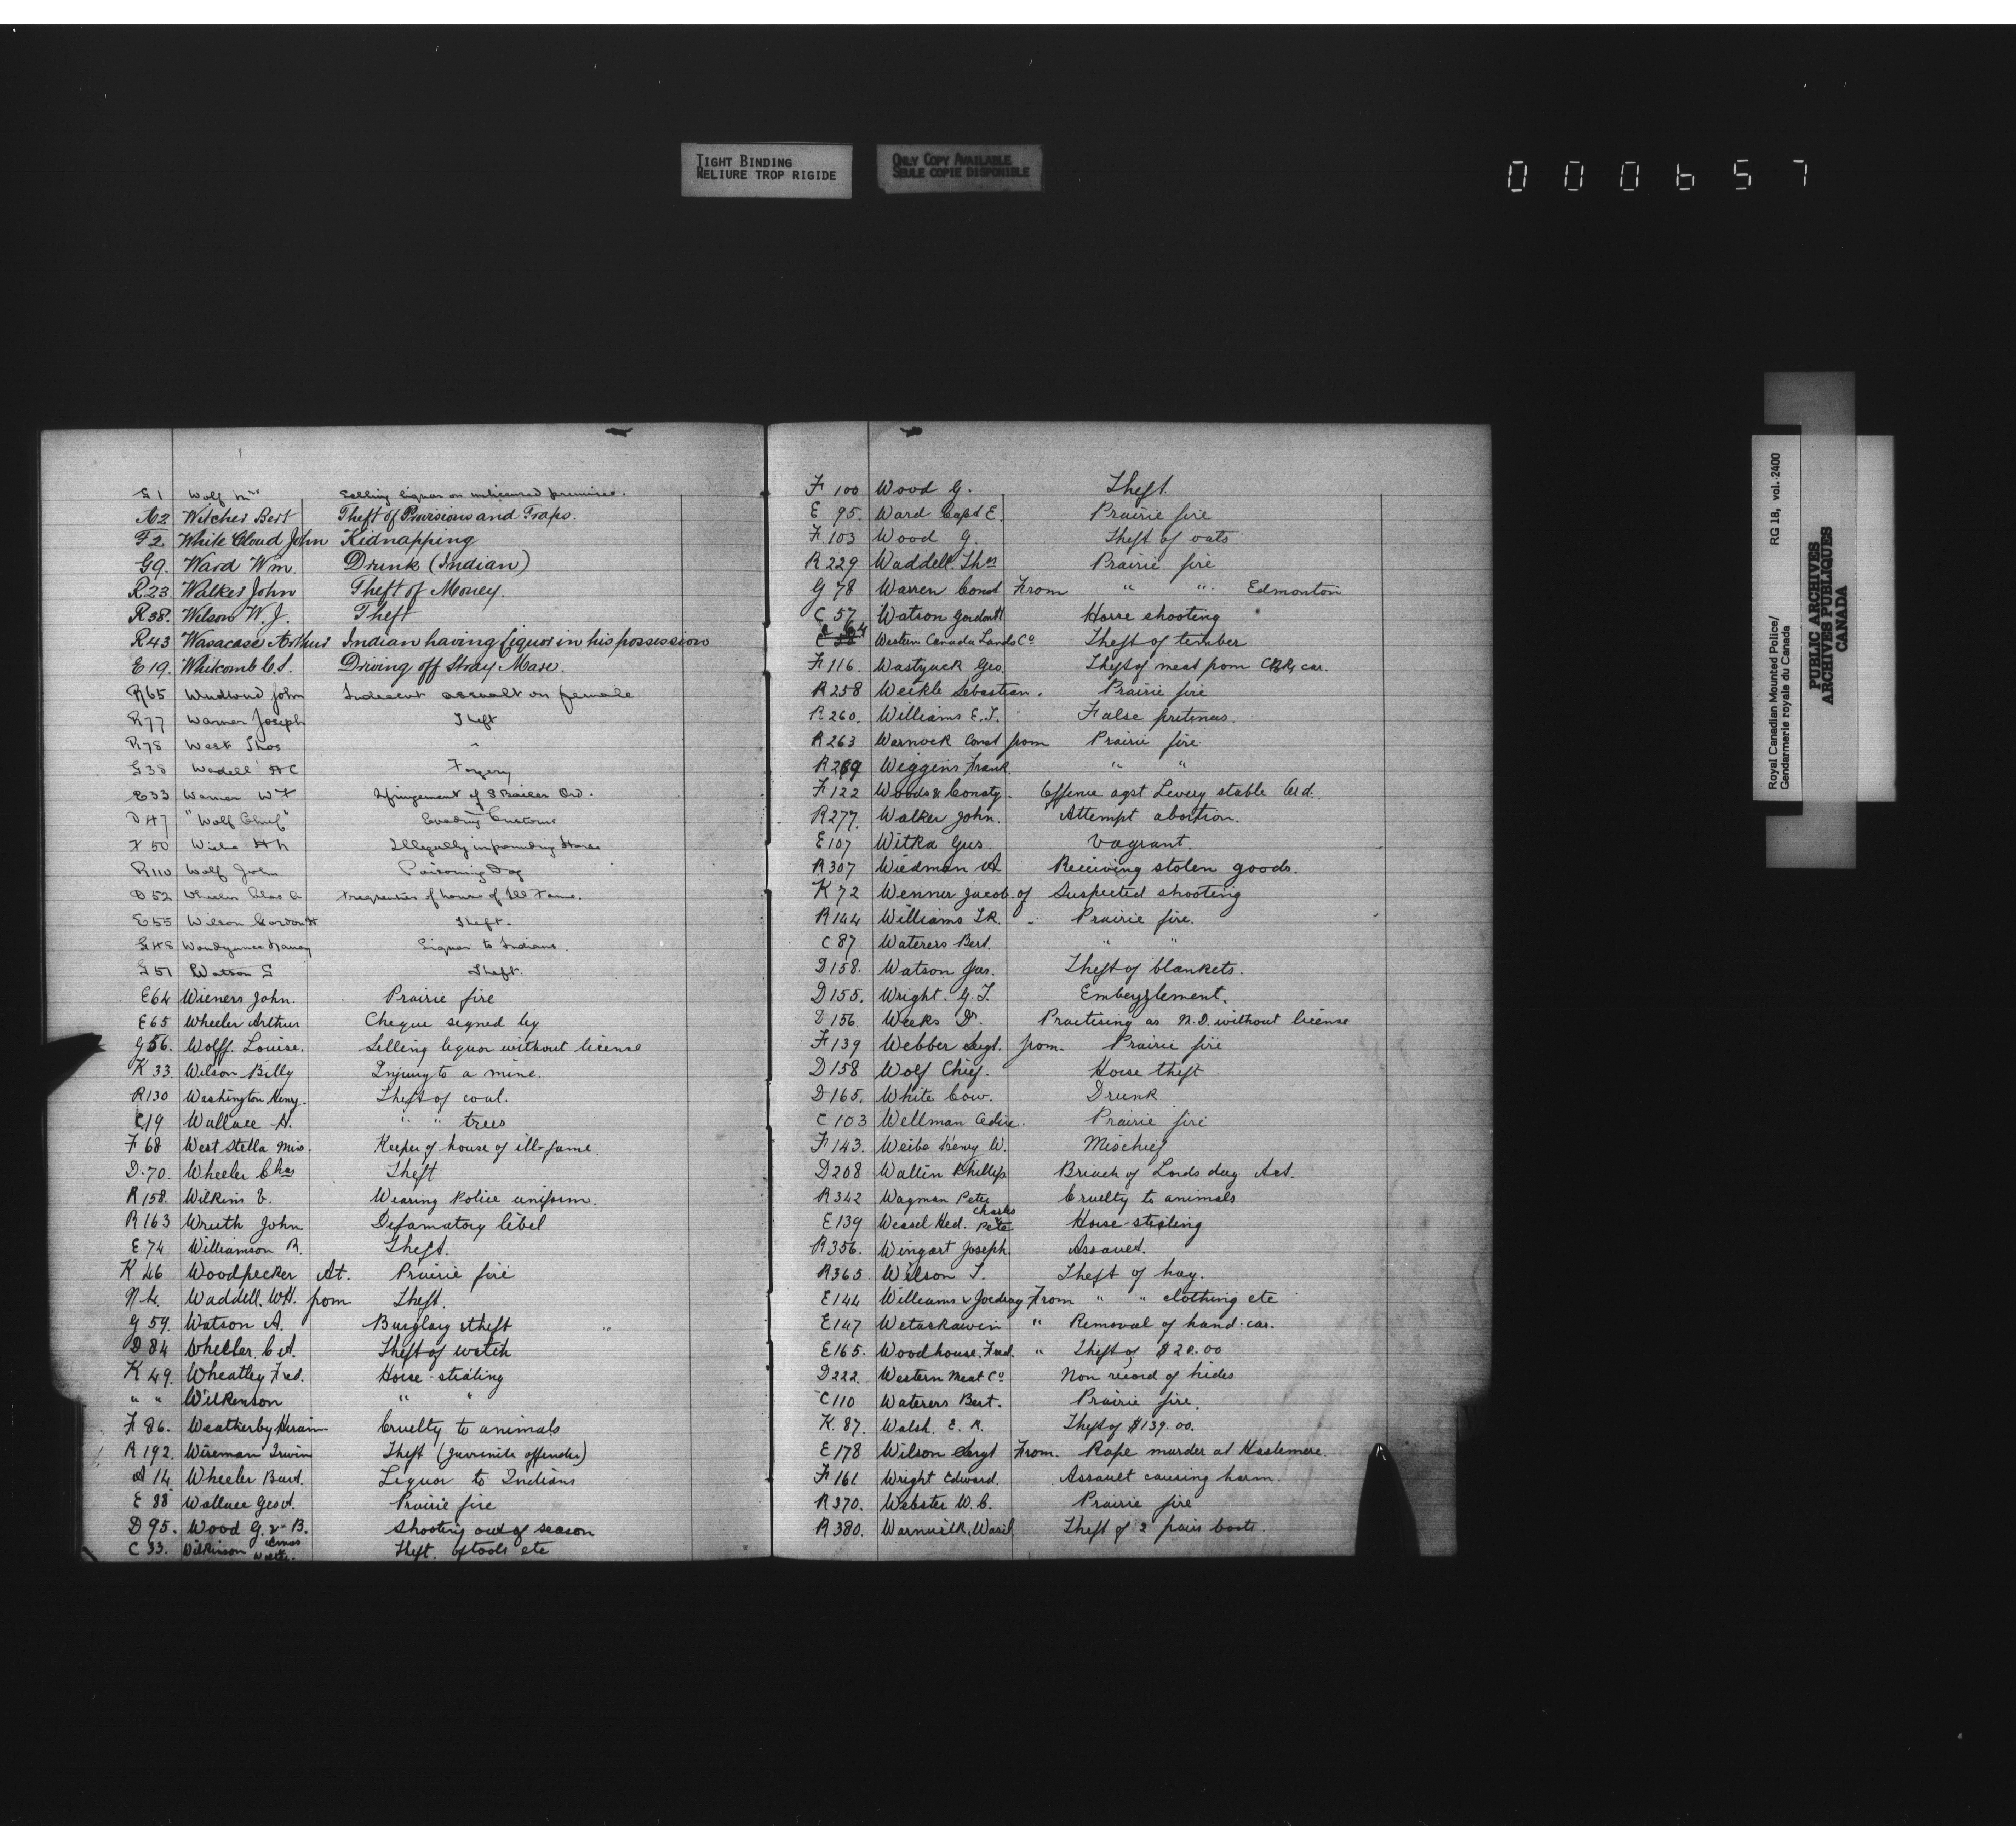 TIGHT BINDING
RELIURE TROP RIGIDE
ONLY COPY AVAILABLE
SEULE COPIE DISPONIBLE
000657
G 1 Wolf Mrs Selling liquor on unlicensed premises.
A2 Wilcher Bert Theft of Provisions and Traps.
F2 White Cloud John Kidnapping
G9. Ward Wm. Drunk (Indian)
R23. Walker John Theft of Money.
R38. Wilson W. J. Theft
R43 Wasacase Arthur Indian having liquor in his possession
E19. Whitcomb C.S. Driving off Stray Mare.
R65 John Indecent assault on female
R77 Warner Joseph Theft
R78 West Thos "
G38 Wadell A C Forgery
E33 Warner W F Infringement of S Boiler Ord.
D47 "Wolf Chief" Evading Customs
F50 H Illegally impounding Horse
R110 Wolf John Poisoning Dog
D52 Wheeler Chas A Frequenter of house of Ill Fame.
E55 Wilson Gordon H Theft.
G48 Liquor to Indians.
G51 Watson S Theft.
E64 Wieners John. Prairie fire
E65 Wheeler Arthur Cheque signed by
G56. Wolff. Louise. Selling liquor without license
K 33. Wilson Billy Injury to a mine.
R130 Washington Henry. Theft of coal.
C19 Wallace A. " " trees
F 68 West Stella Miss. Keeper of house of ill-fame.
D.70. Wheeler Chas Theft
R158. Wilkins V. Wearing Police uniform.
R163 Wruth John. Defamatory libel
E 74 Williamson R. Theft.
K 46 Woodpecker At. Prairie fire
N 4. Waddell. WH. from Theft.
G 59. Watson A. Burglary & theft "
D 84 Wheeler. C A. Theft of watch
K 49. Wheatley Fred. Horse-stealing
" " Wilkenson " "
F 86. Weatherby Hiram Cruelty to animals
R 192. Wireman Irwin Theft (Juvenile offender)
A 14 Wheeler Burt. Liquor to Indians
E 88 Wallace Geo A. Prairie fire
D 95. Wood G. & B. Shooting out of season
C 33. Wilkinson Amos Walter. Theft. of tools etc
F 100 Wood G. Theft.
E 95. Ward Capt E. Prairie fire
F 103 Wood G. Theft of oats
R 229 Waddell. Thos Prairie fire
G 78 Warren Const From " " Edmonton
C 57 Watson Gordon H Horse shooting
Western Canada Land Co Theft of timber
F 116. Wastyuck Geo. Theft of meat from CPR, car.
R 258 Weikle Sebastian. Prairie fire
R 260. Williams E.J. False pretenses.
R 263 Warnock Const from Prairie fire.
R 269 Wiggins Frank. " "
F 122 Woods & Consty. Offence agst Livery stable Ord.
R 277. Walker John. Attempt abortion.
E 107 Witka Gus. Vagrant.
R 307 Wiedman A Receiving stolen goods.
K 72 Wenner Jacob. of Suspected shooting
R 144 Williams T.R. Prairie fire.
C 87 Waterers Bert. " "
D 158. Watson Jas. Theft of blankets.
D 155. Wright. G. T. Embezzlement.
D 156 Weeks Dr. Practising as M.D. without license
F 139 Webber Sergt. from. Prairie fire
D 158 Wolf Chief. Horse theft
D 165. White Cow. Drunk
C 103 Wellman Prairie fire
F 143. Weibe Henry W. Mischief
D 208 Wallin Phillip Breach of Lords day Act.
R 342 Wagman Peter Cruelty to animals
E 139 Weasel Hed. Charles & Pete Horse-stealing
R 356. Wingart Joseph. Assault.
R 365. Wilson T. Theft of hay.
E 144 Williams & From " " clothing etc
E 147 Wetaskawin " Removal of hand-car.
E 165. Woodhouse. Fred. " Theft of $20.00
D 222. Western Meat Co Non record of hides
C 110 Waterers Bert. Prairie fire.
K. 87. Walsh. E. R. Theft of $139.00.
E 178 Wilson Sergt From. Rape murder at Hastemere.
F 161. Wright Edward. Assault causing harm.
R 370. Webster W. C. Prairie fire
R 380. Warnwilk, Wasil Theft of 2 pairs boots.
Royal Canadian Mounted Police/ RG 18, vol. 2400
Gendarmerie royale du Canada
PUBLIC ARCHIVES
ARCHIVES PUBLIQUES
CANADA